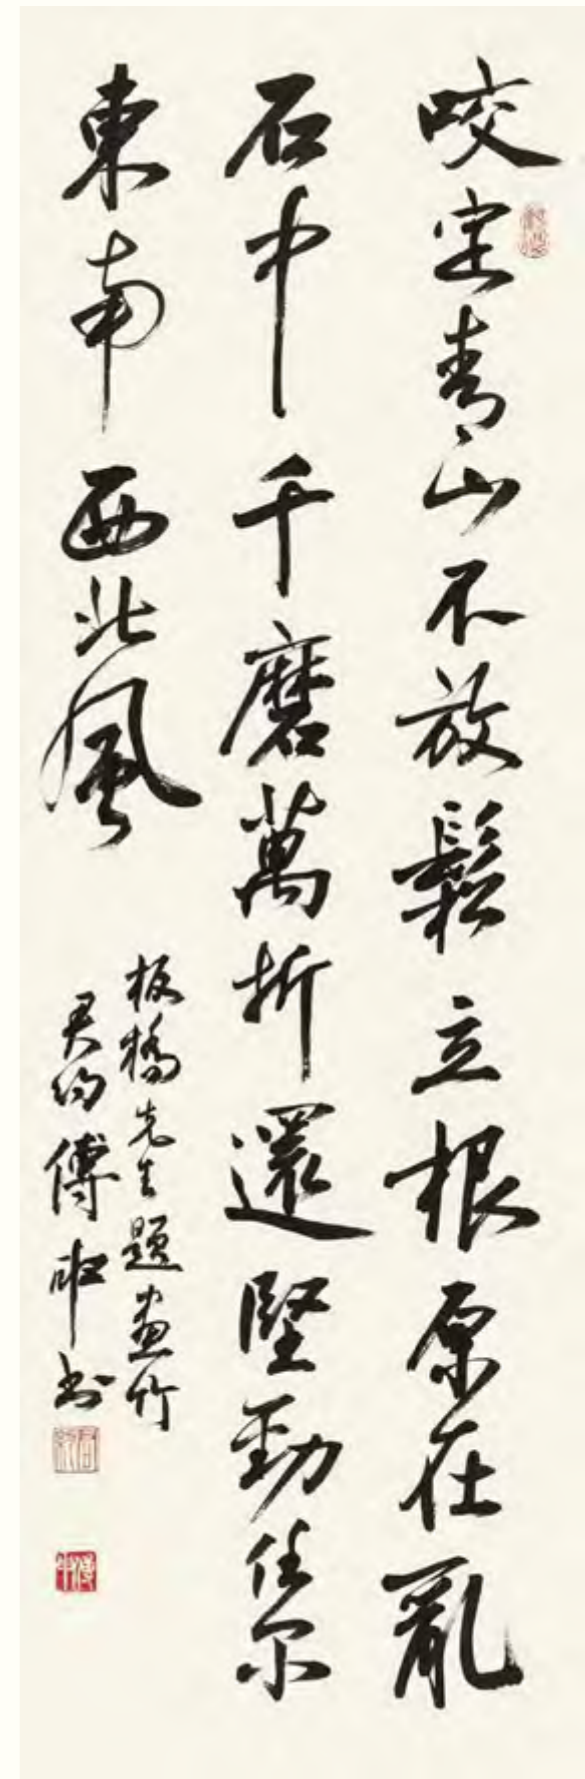 咬定青山不放鬆立根原在亂
石中千磨萬折還堅勁任尔
東南西北風
板橋先生題畫竹
君約傅申書